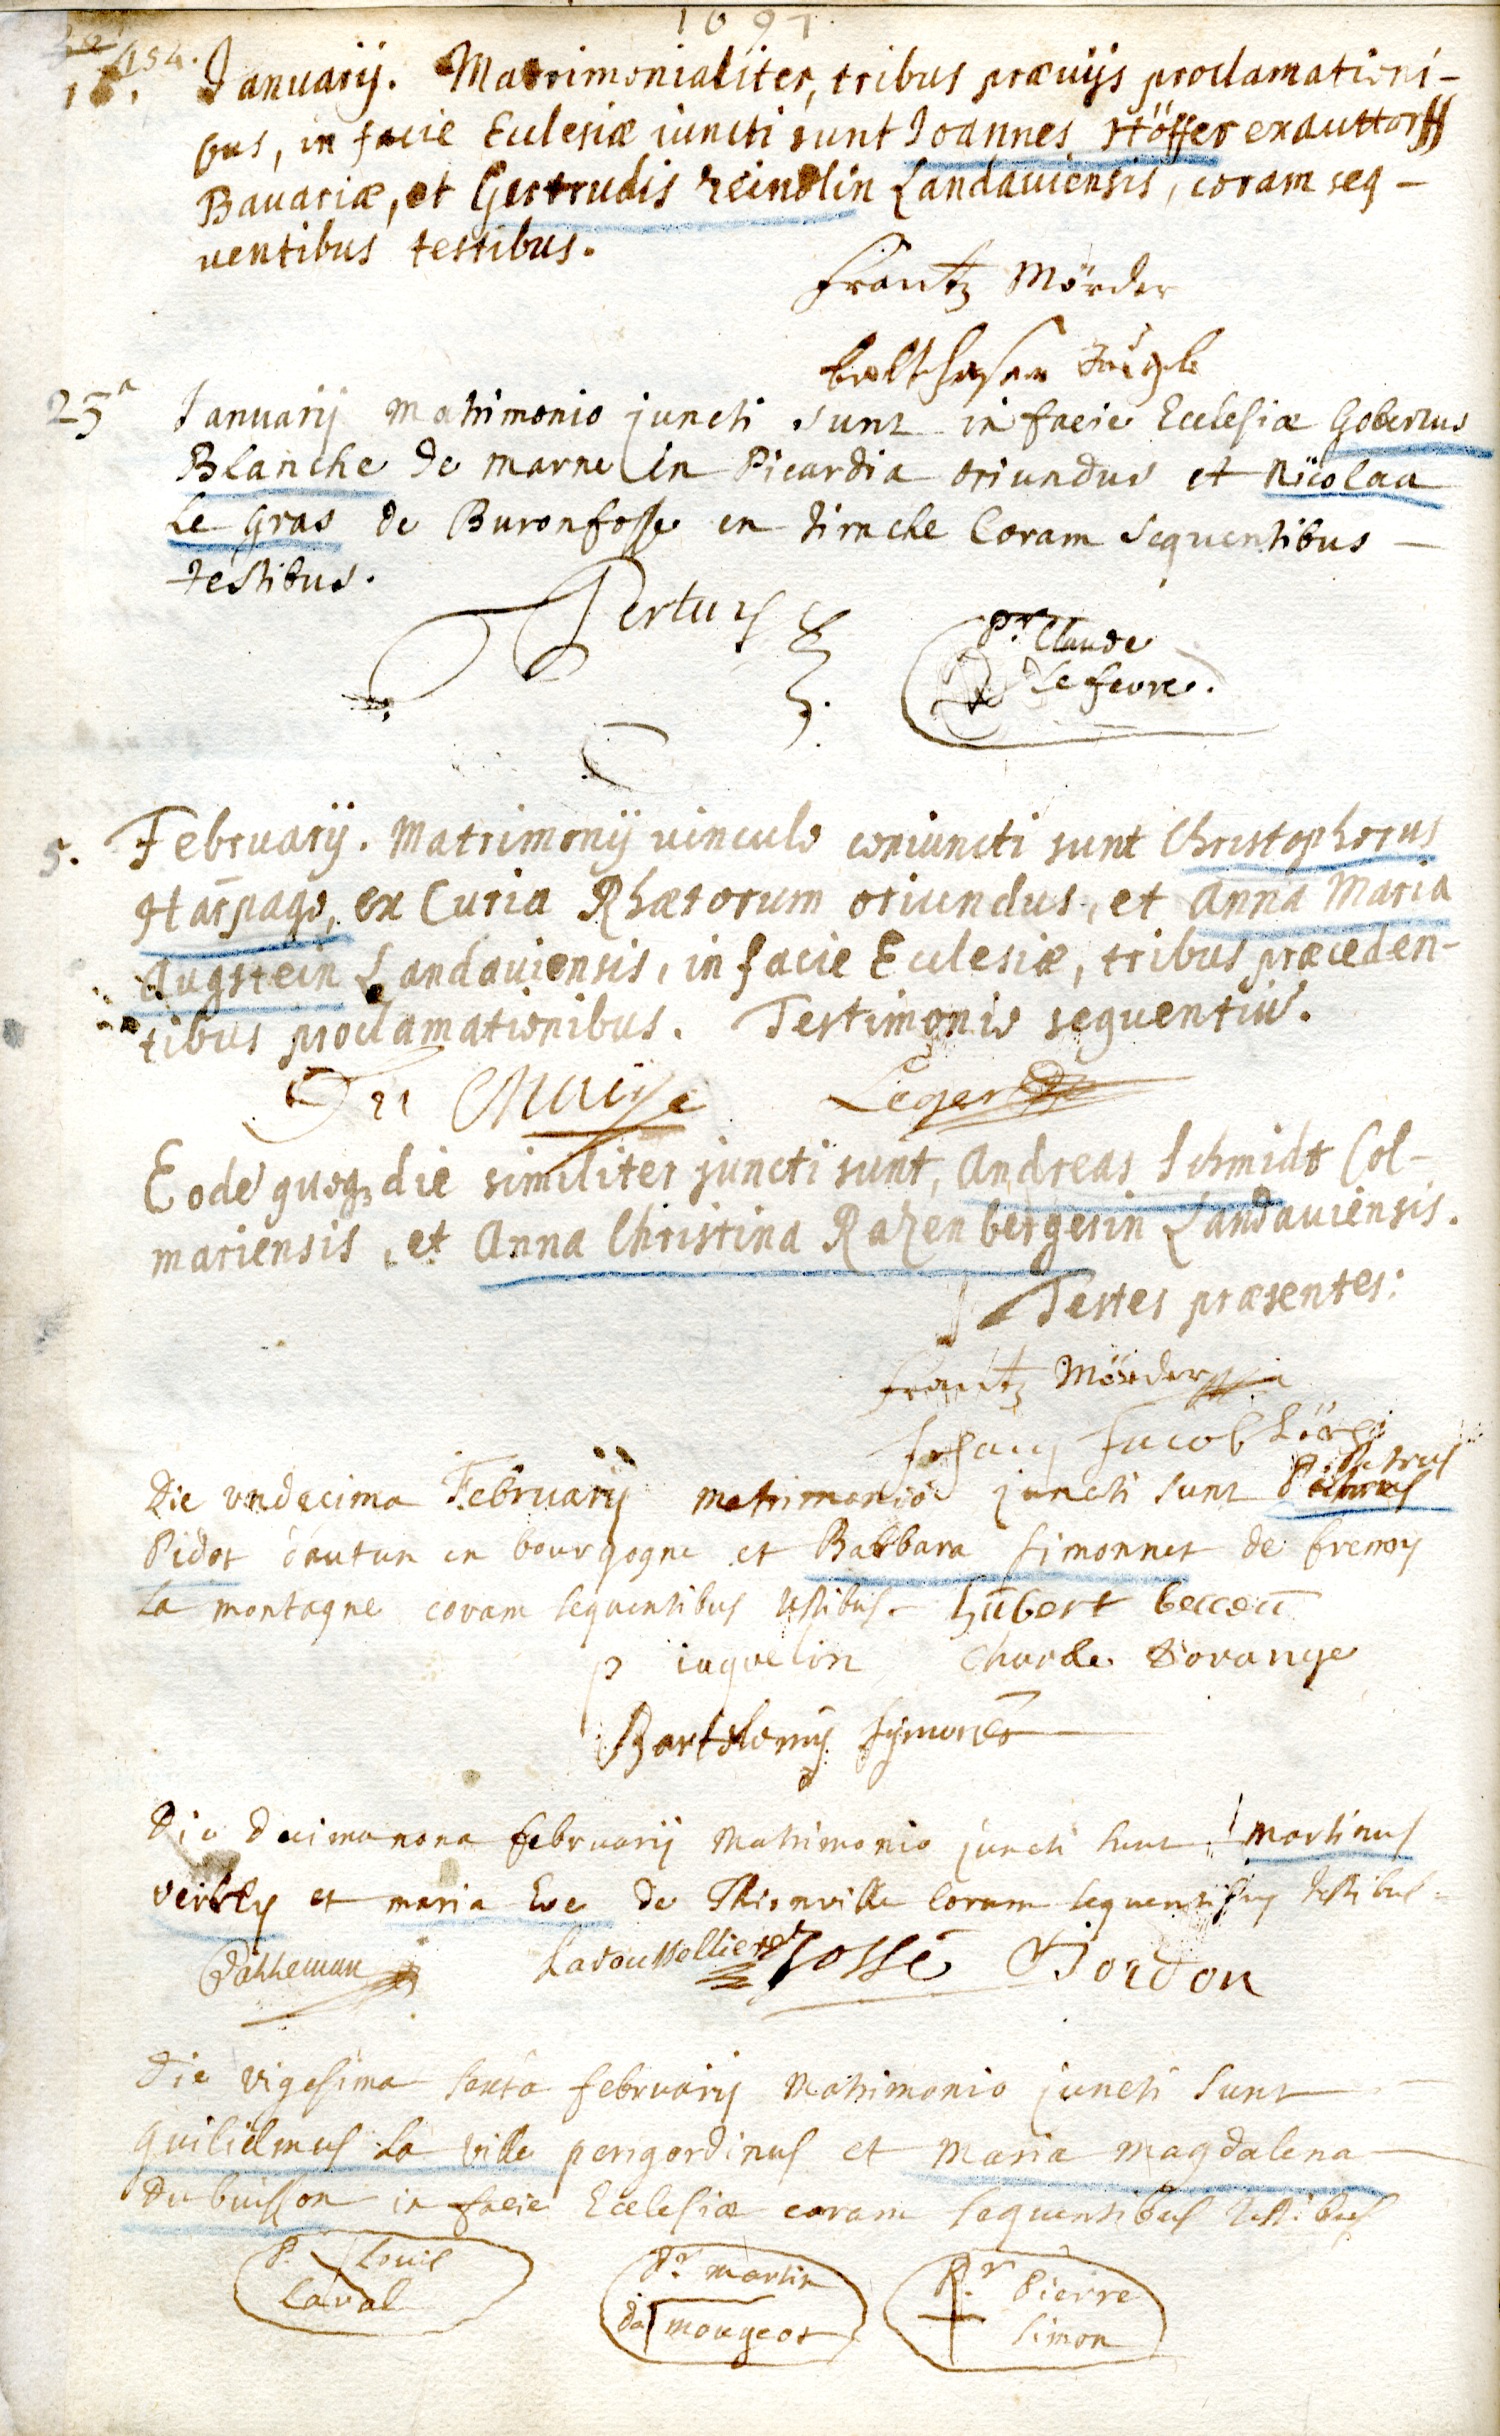 1697
154.
Januarij. Matrimonialiter, tribus præuijs proclamationi-
bus, in facie Ecclesiæ iuncti sunt Joannes Höffer ex auttorff
Bauariæ, et Gertrudis reindlin Landauiensis, coram seq-
uentibus testibus.
Frantz Mörder
balthasar
25ª Januarij matrimonio juncti sunt in facie Ecclesiæ Gobertus
Blanche de marne in Picardia oriundus et Nicolaa
Le gras de Buronfosse en tirache Coram sequentibus —
testibus.
Pertuis
Pr. Claude
Lefevre.
5. February. Matrimonij uinculo coniuncti sunt Christophorus
Harpago, ex Curia Rhætorum oriundus, et Anna Maria
Augstein Landauiensis, in facie Ecclesiæ, tribus præceden-
tibus proclamationibus. Testimonio sequentiū.
Leger
Eodē quoqȝ die similiter juncti sunt, Andreas Schmidt Col-
mariensis, et Anna Christina Razenbergerin Landauiensis.
Testes præsentes:
Frantz Mörder
Johann Jacob
Petrus
Die vndecima February matrimonio juncti sunt Petrus
Pidot d'autun en bourgogne et Barbara simonnet de frenoy
La montagne coram sequentibus testibus. hubert beccou
p iaquelin Charle Dorange
Bartolomy Symonet
Die decimanona februarij Matrimonio juncti sunt martinus
verkly et maria Eve de Thionville Coram sequentibus testibus =
Dahleman Ladousselliere Josse Bordon
Die vigesima sexta february Matrimonio juncti sunt —
guilielmus La ville perigordinus et maria magdalena —
Du buisson in facie Ecclesiæ coram sequentibus testibus
P. Louis
Laval
Pr. martin
da mougeot
P.r Pierre
simon